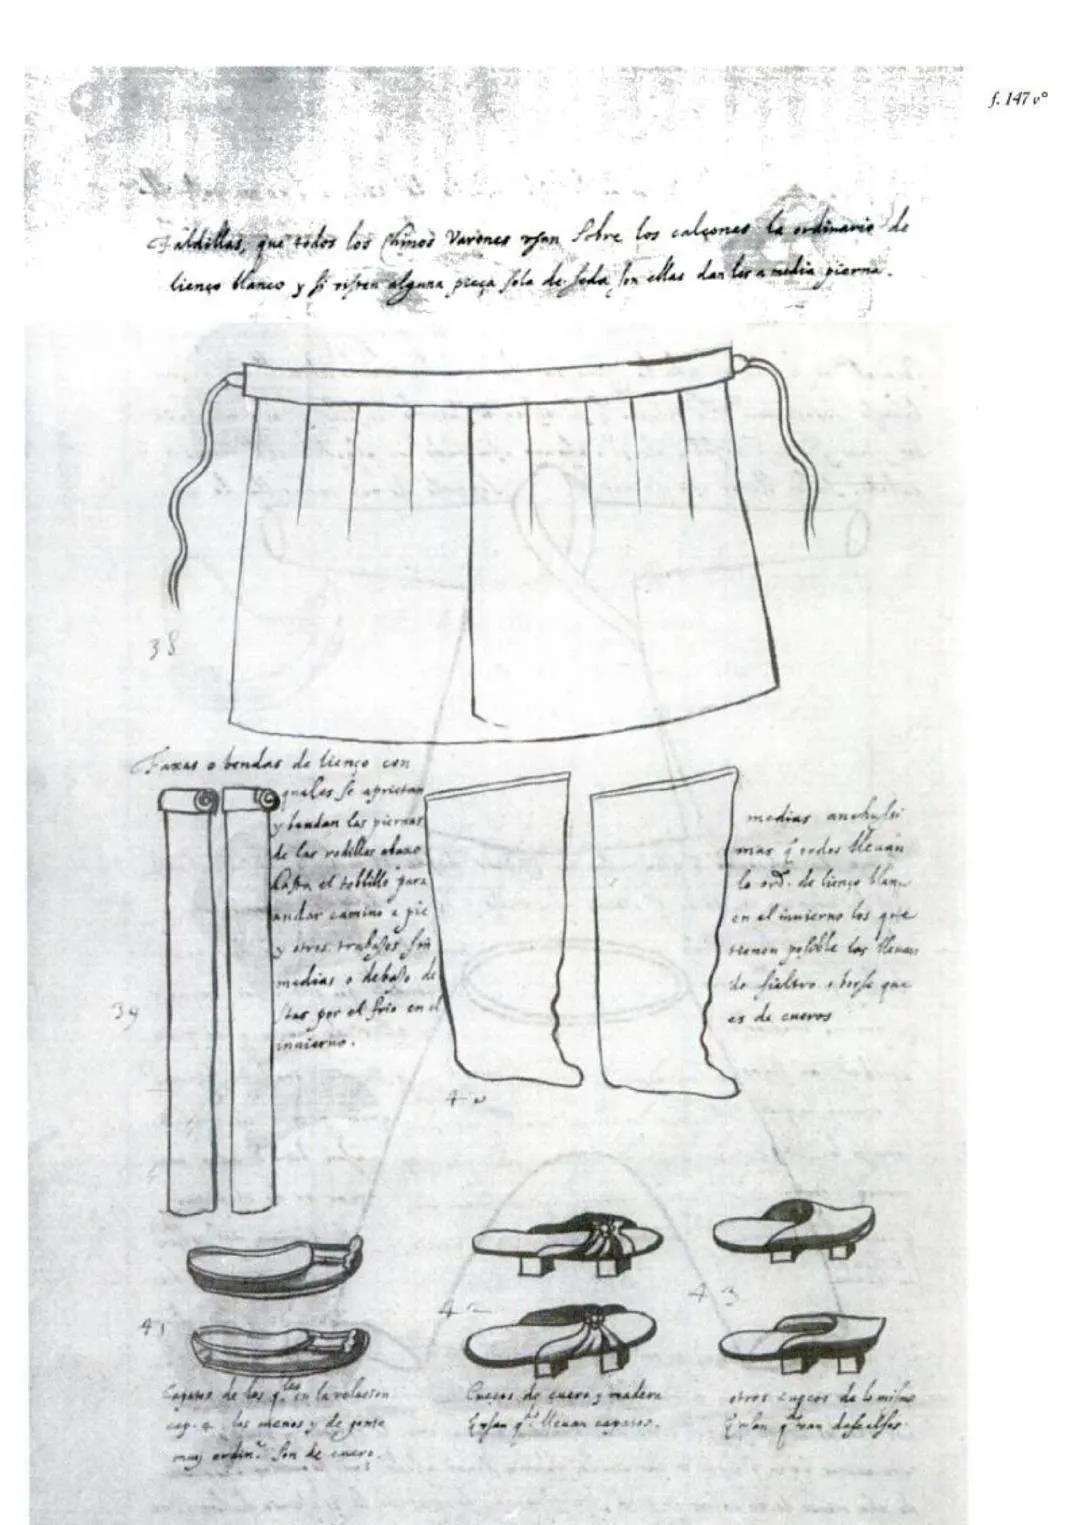 f. 147 vº
Faldillas, que todos los chinos Varones usan sobre los calçones lo ordinario de
lienço blanco y si visten alguna pieça sola de seda son ellas danles a media pierna.
38
Faxas o bendas de lienço con
quales se aprietan
y bendan las piernas
de las rodillas abaxo
hasta el tobillo para
andar camino a pie
y otros trabajos sin
medias o debaxo de
stas por el frio en el
innierno.
39
medias anchissi
mas q todos lleuan
lo ord. de lienço blanco
en el innierno los que
tienen possible las lleuan
de fieltro o borse que
es de cueros
40
41
Çapatos de los q. en la relacion
cap. 4. los menos y de gente
muy ordin. son de cuero.
42
Çuecos de cuero y madera
q usan q. lleuan capatos.
43
otros çuecos de lo mismo
q usan q. van descalsos.